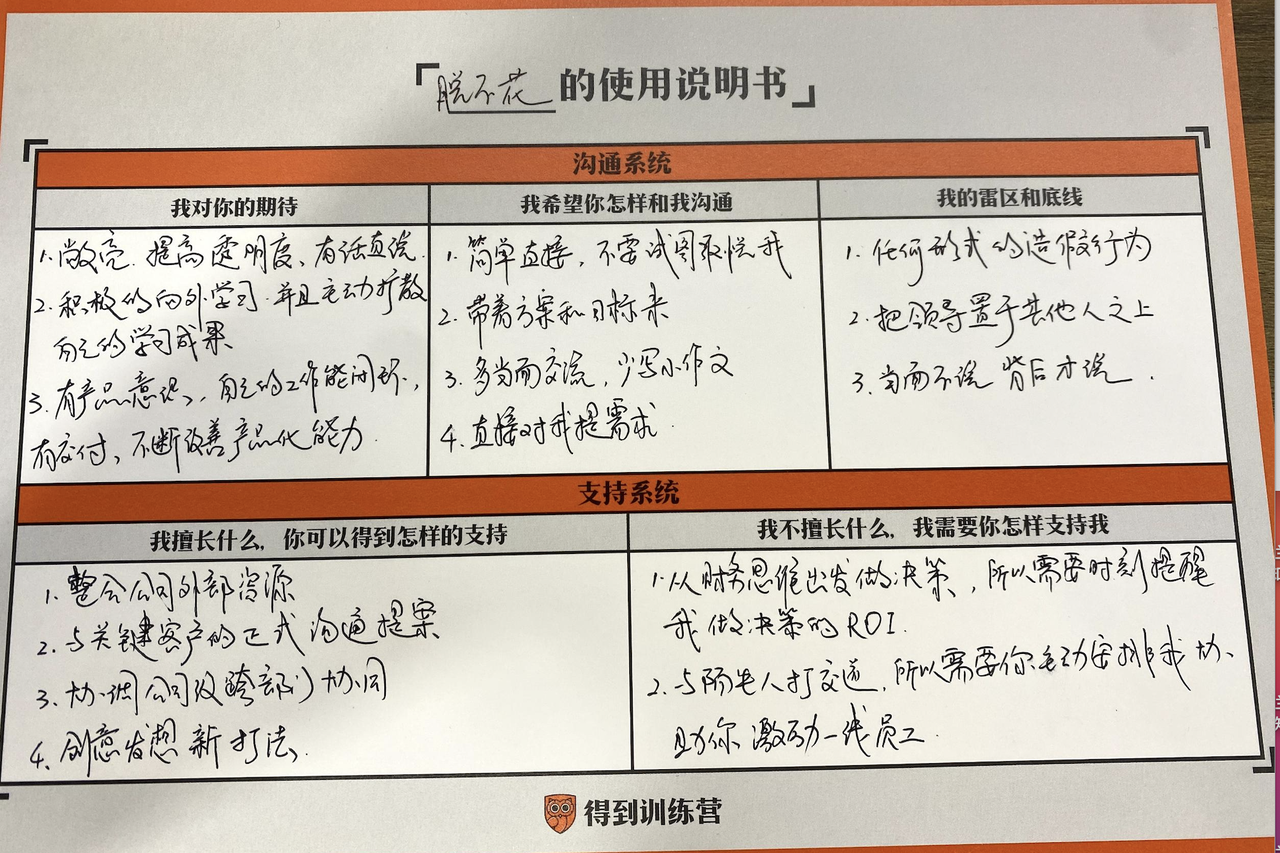 「脱不花的使用说明书」
沟通系统
我对你的期待
1.敞亮.提高透明度、有话直说.
2.积极的向外学习.并且主动扩散
自己的学习成果
3.有产品意识,自己的工作能闭环,
有交付、不断改善产品化能力.
我希望你怎样和我沟通
1.简单直接,不要试图取悦我
2.带着方案和目标来
3.多当面交流,少写小作文
4.直接对我提需求.
我的雷区和底线
1.任何形式的造假行为
2.把领导置于其他人之上
3.当面不说 背后才说.
支持系统
我擅长什么,你可以得到怎样的支持
1.整合公司外部资源
2.与关键客户的正式沟通提案
3.协调公司级跨部门协同
4.创意发想 新打法.
我不擅长什么,我需要你怎样支持我
1.从财务思维出发做决策,所以需要时刻提醒
我做决策的ROI.
2.与陌生人打交道,所以需要你主动安排我协
助你 激励一线员工.
得到训练营